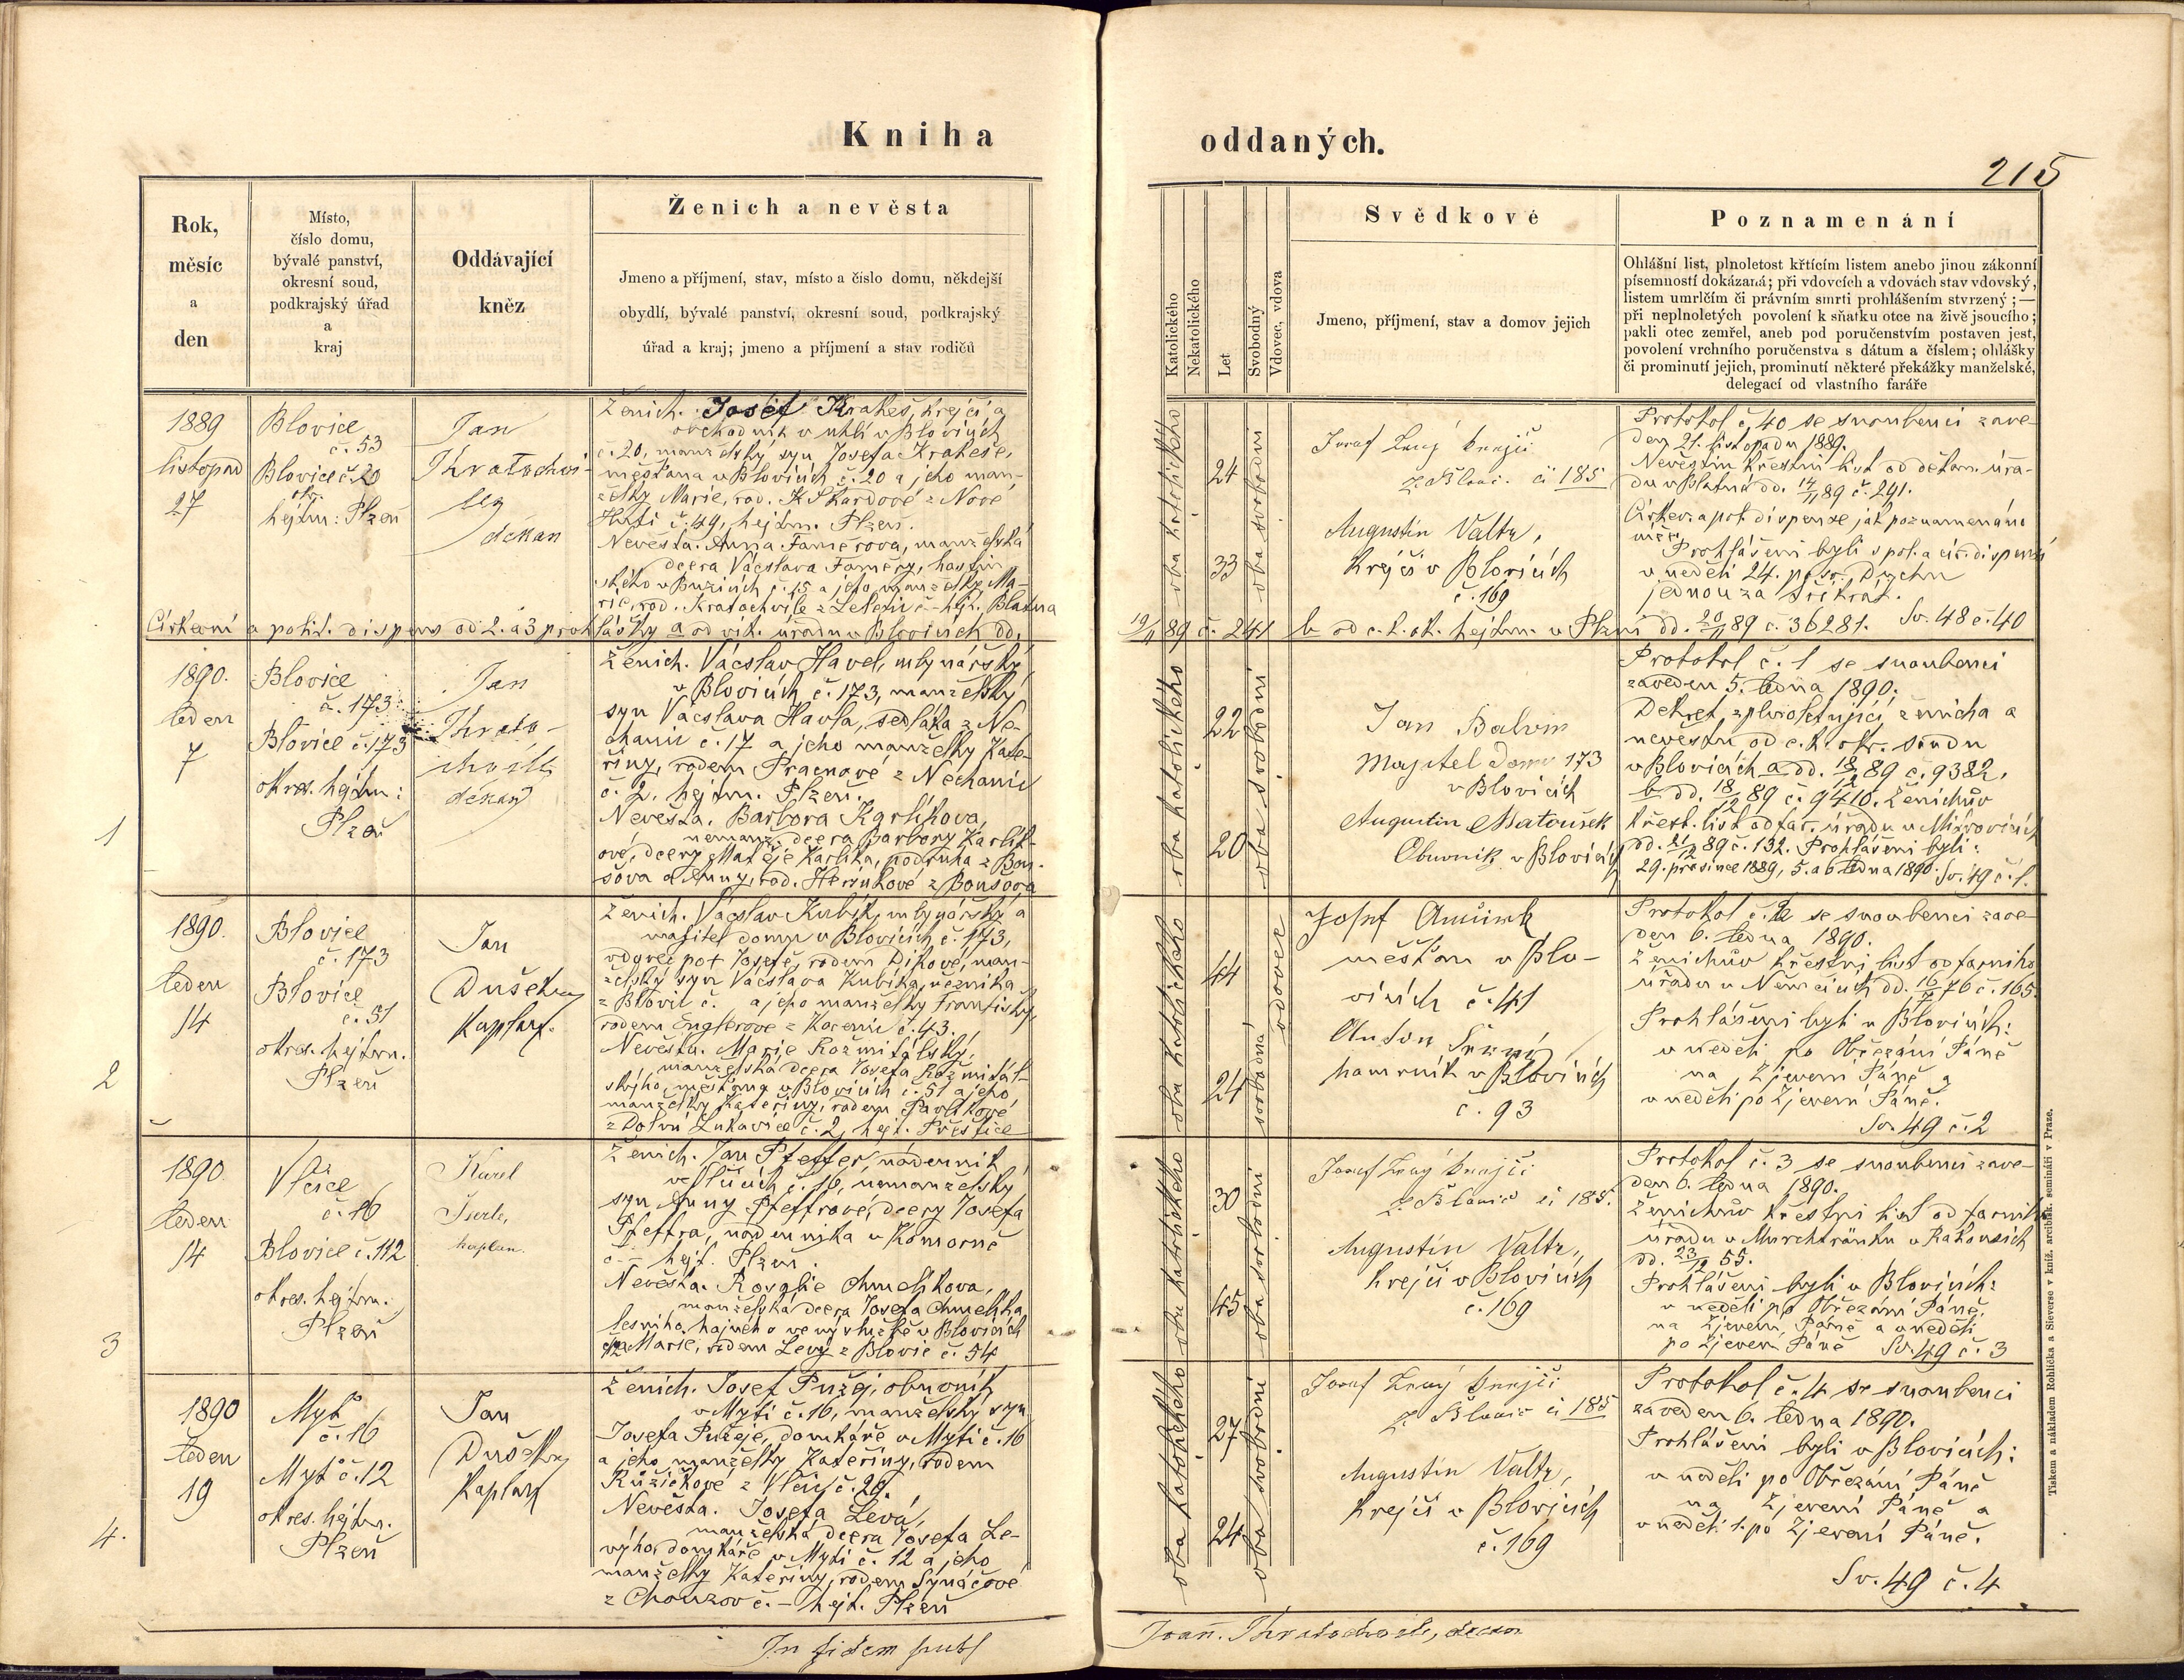 Kniha oddaných.
215
Rok,
měsíc
a
den
Místo,
číslo domu,
bývalé panství,
okresní soud,
podkrajský úřad
a
kraj
Oddávající
kněz
Ženich a nevěsta
Jmeno a příjmení, stav, místo a číslo domu, někdejší
obydlí, bývalé panství, okresní soud, podkrajský
úřad a kraj; jmeno a příjmení a stav rodičů
Katolického
Nekatolického
Let
Svobodný
Vdovec, vdova
Svědkové
Jmeno, příjmení, stav a domov jejich
Poznamenání
Ohlášní list, plnoletost křtícím listem anebo jinou zákonní
písemností dokázaná; při vdovcích a vdovách stav vdovský,
listem umrlčím či právním smrti prohlášením stvrzený;—
při neplnoletých povolení k sňatku otce na živě jsoucího;
pakli otec zemřel, aneb pod poručenstvím postaven jest,
povolení vrchního poručenstva s dátum a číslem; ohlášky
či prominutí jejich, prominutí některé překážky manželské,
delegací od vlastního faráře
1889
listopad
27
Blovice
č. 53
Blovice č. 20
okr.
hejtm: Plzeň
Jan
Kratochvi-
le
děkan
Ženich. Josef Krakeš, krejčí a
obchodník v uhlí v Blovicích
č. 20, manželský syn Josefa Krakeše,
měšťana v Blovicích č. 20 a jeho man-
želky Marie, rod. z Nové
Huti č. 49, hejtm. Plzeň.
Nevěsta. Anna Faměrova, manželská
dcera Vácslava Faměry,
v Buzicích č. 15 a jeho manželky Ma-
rie, rod. Kratochvíle z Leletic č – hejt. Blatna
oba katolického
24
33
oba svobodni
Josef Levý krejčí
z Blovic. či 185
Augustin Valtr,
Krejčí v Blovicích
č. 169
Protokol č. 40 se snoubenci zave-
den 21. listopadu 1889.
Nevěstin křestní list od děkan. úřa-
du v Blatné dd. 14/11 89 č. 291.
Církev. a pol. dispense jak poznamenáno
níže.
Prohlášeni byli s pol. a cír. dispensí
v neděli 24. po sv. Duchu
jednou za třikrát.
Církevní a polit. dispens od 2. a 3 prohlášky a od vik. úřadu v Blovicích dd. 19/11 89 č. 241 b od c. k. ok. hejtm. v Plzni dd. 20/11 89 č. 36281. Sv. 48 č. 40
1
1890.
leden
7
Blovice
č. 173
Blovice č. 173
okres. hejtm:
Plzeň
Jan
Krato-
chvíle
děkan
Ženich. Vácslav Havel, mlynářský
v Blovicích č. 173, manželský
syn Vácslava Havla, sedláka z Ne-
chanic č. 17 a jeho manželky Kate-
řiny, rodem Pracnové z Nechanic
č. 2, hejtm. Plzeň.
Nevěsta. Barbora Karlíkova,
nemanž. dcera Barbory Karlík-
ové, dcery Matěje Karlíka, podruha z Bou-
šova a Anny, rod. z Boušova
oba katolického
22
20
oba svobodni
Jan Balvín
Majitel Domu 173
v Blovicích
Augustin Matoušek
Obuvník v Blovicích
Protokol č. 1 se snoubenci
zaveden 5. ledna 1890.
Dekret zplnoletnující ženicha a
nevěstu od c. k. okr. soudu
v Blovicích a dd. 18/12 89 č. 9382,
b dd. 18/12 89 č. 9410. Ženichův
křest. list od far. úřadu v Mirovicích
dd. 21/12 89 č. 132. Prohlášeni byli:
29. prosince 1889, 5. a 6 ledna 1890. Sv. 49 č. 1.
2
1890.
leden
14
Blovice
č. 173
Blovice
č. 51
okres. hejtm.
Plzeň
Jan
Dušek
Kaplan.
Ženich. Vácslav Kubík, mlynářský a
majitel domu v Blovicích č. 173,
vdovec po † Josefě, rodem Dikové, man-
želský syn Vácslava Kubíka, řezníka
z Blovic č. a jeho manželky Františky,
rodem Englerove z Kocenic č. 43.
Nevěsta. Marie Rožmitálský,
manželská dcera Josefa Rožmitál-
ského, měšťana v Blovicích č. 51 a jeho
manželky Kateřiny, rodem Pavlíkové
z Dolní Lukavice č. 2, hejt. Přeštice
oba katolického
44
24
vdovec
svobodná
Josef
měšťan v Blo-
vicích č. 41
Anton
hamrník v Blovicích
č. 93
Protokol č. 2 se snoubenci zave-
den 6. ledna 1890.
Ženichův křestní list od farního
úřadu v dd. 16/11 76 č. 165.
Prohlášeni byli v Blovicích:
v neděli po Obřezání Páně
na Zjevení Páně a
v neděli po Zjevení Páně.
Sv. 49 č. 2
3
1890
leden
14
Vlčice
č. 16
Blovice č. 112
okres. hejtm.
Plzeň
Karel
kaplan.
Ženich. Jan Pfeffer, nádenník
ve Vlčicích č. 16, nemanželský
syn Anny Pfeffrové, dcery Josefa
Pfeffra, nádenníka v Komorně
č – hejt. Plzeň.
Nevěsta. Rosalie Chmelíkova,
manželská dcera Josefa Chmelíka,
lesního hajného ve výslužbě v Blovicích
a Marie, rodem Levý z Blovic č. 54
oba katolického
30
45
oba svobodni
Josef Levý krejčí
z Blovic či 185.
Augustin Valtr,
krejčí v Blovicích
č. 169
Protokol č. 3 se snoubenci zave-
den 6. ledna 1890.
Ženichův křestní list od farního
úřadu v v Rakousích
dd. 23/12 55.
Prohlášeni byli v Blovicích:
v neděli po Obřezání Páně.
na Zjevení Páně a v neděli
po Zjevení Páně Sv. 49 č. 3
4.
1890
leden
19
Mýť
č. 16
Mýť č. 12
okres. hejtm.
Plzeň
Jan
Dušek
Kaplan
Ženich. Josef Pužej, obuvník
v Mýti č. 16, manželský syn
Josefa Pužeje, domkáře v Mýti č. 16
a jeho manželky Kateřiny, rodem
Růžičkové z Vlčic č. 29.
Nevěsta. Josefa Levá,
manželská dcera Josefa Le-
výho, domkáře v Mýti č. 12 a jeho
manželky Kateřiny, rodem Synáčové
z Chouzov č. – hejt. Plzeň
oba katolického
27
24
oba svobodni
Josef Levý krejčí
z Blovic či 185
Augustin Valtr,
Krejčí v Blovicích
č. 169
Protokol č. 4 se snoubenci
zaveden 6. ledna 1890.
Prohlášeni byli v Blovicích:
v neděli po Obřezání Páně
na Zjevení Páně a
v neděli 1. po Zjevení Páně.
Sv. 49 č. 4
In fidem publ
Joan. Kratochvíle, decan
Tiskem a nákladem Rohlíčka a Sieverse v kníž. arcibisk. semináři v Praze.